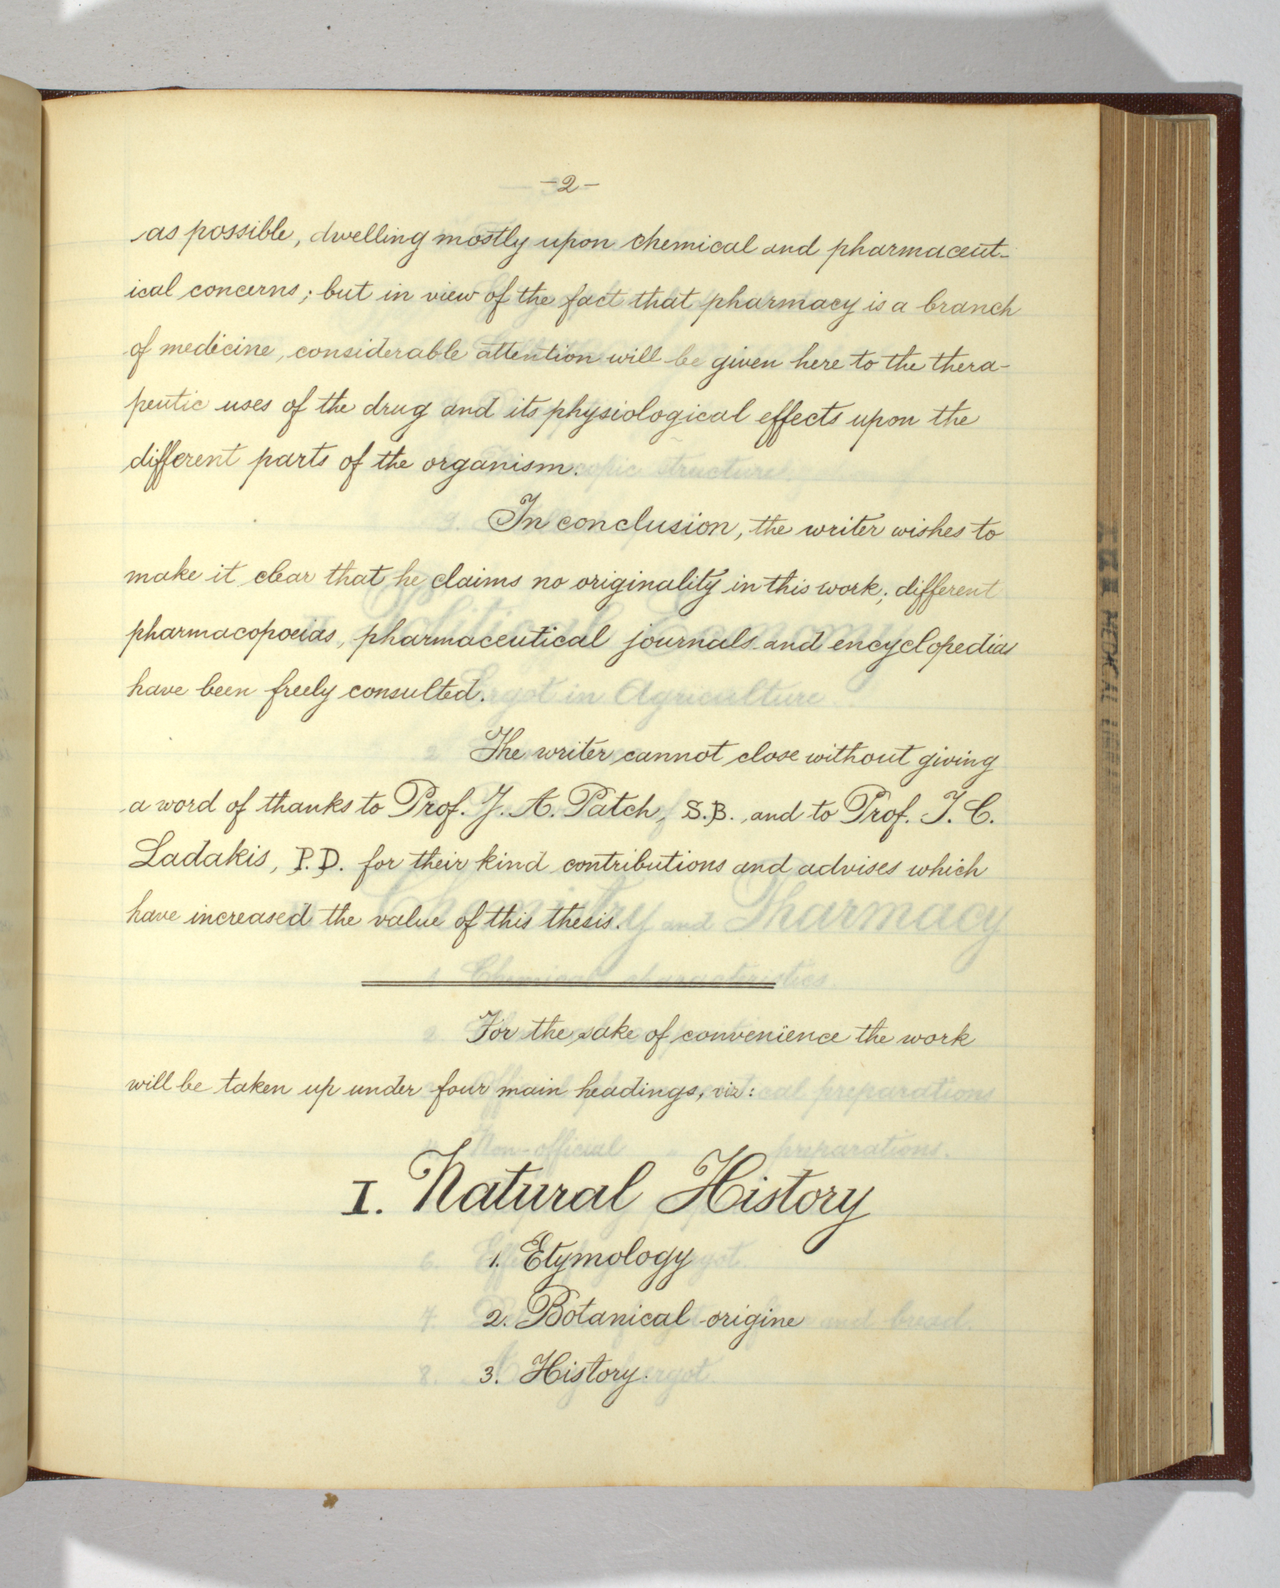 -2-
as possible, dwelling mostly upon chemical and pharmaceut-
ical concerns; but in view of the fact that pharmacy is a branch
of medicine, considerable attention will be given here to the thera-
peutic uses of the drug and its physiological effects upon the
different parts of the organism.
In conclusion, the writer wishes to
make it clear that he claims no originality in this work; different
pharmacopoeias, pharmaceutical journals and encyclopedias
have been freely consulted.
The writer cannot close without giving
a word of thanks to Prof. J. A. Patch, S.B. and to Prof. T. C.
Ladakis, P.D. for their kind contributions and advises which
have increased the value of this thesis.
For the sake of convenience the work
will be taken up under four main headings, viz:
I. Natural History
1. Etymology
2. Botanical origine
3. History.
MEDICAL